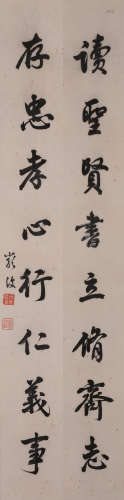 讀聖賢書立脩齊志
存忠孝心行仁義事